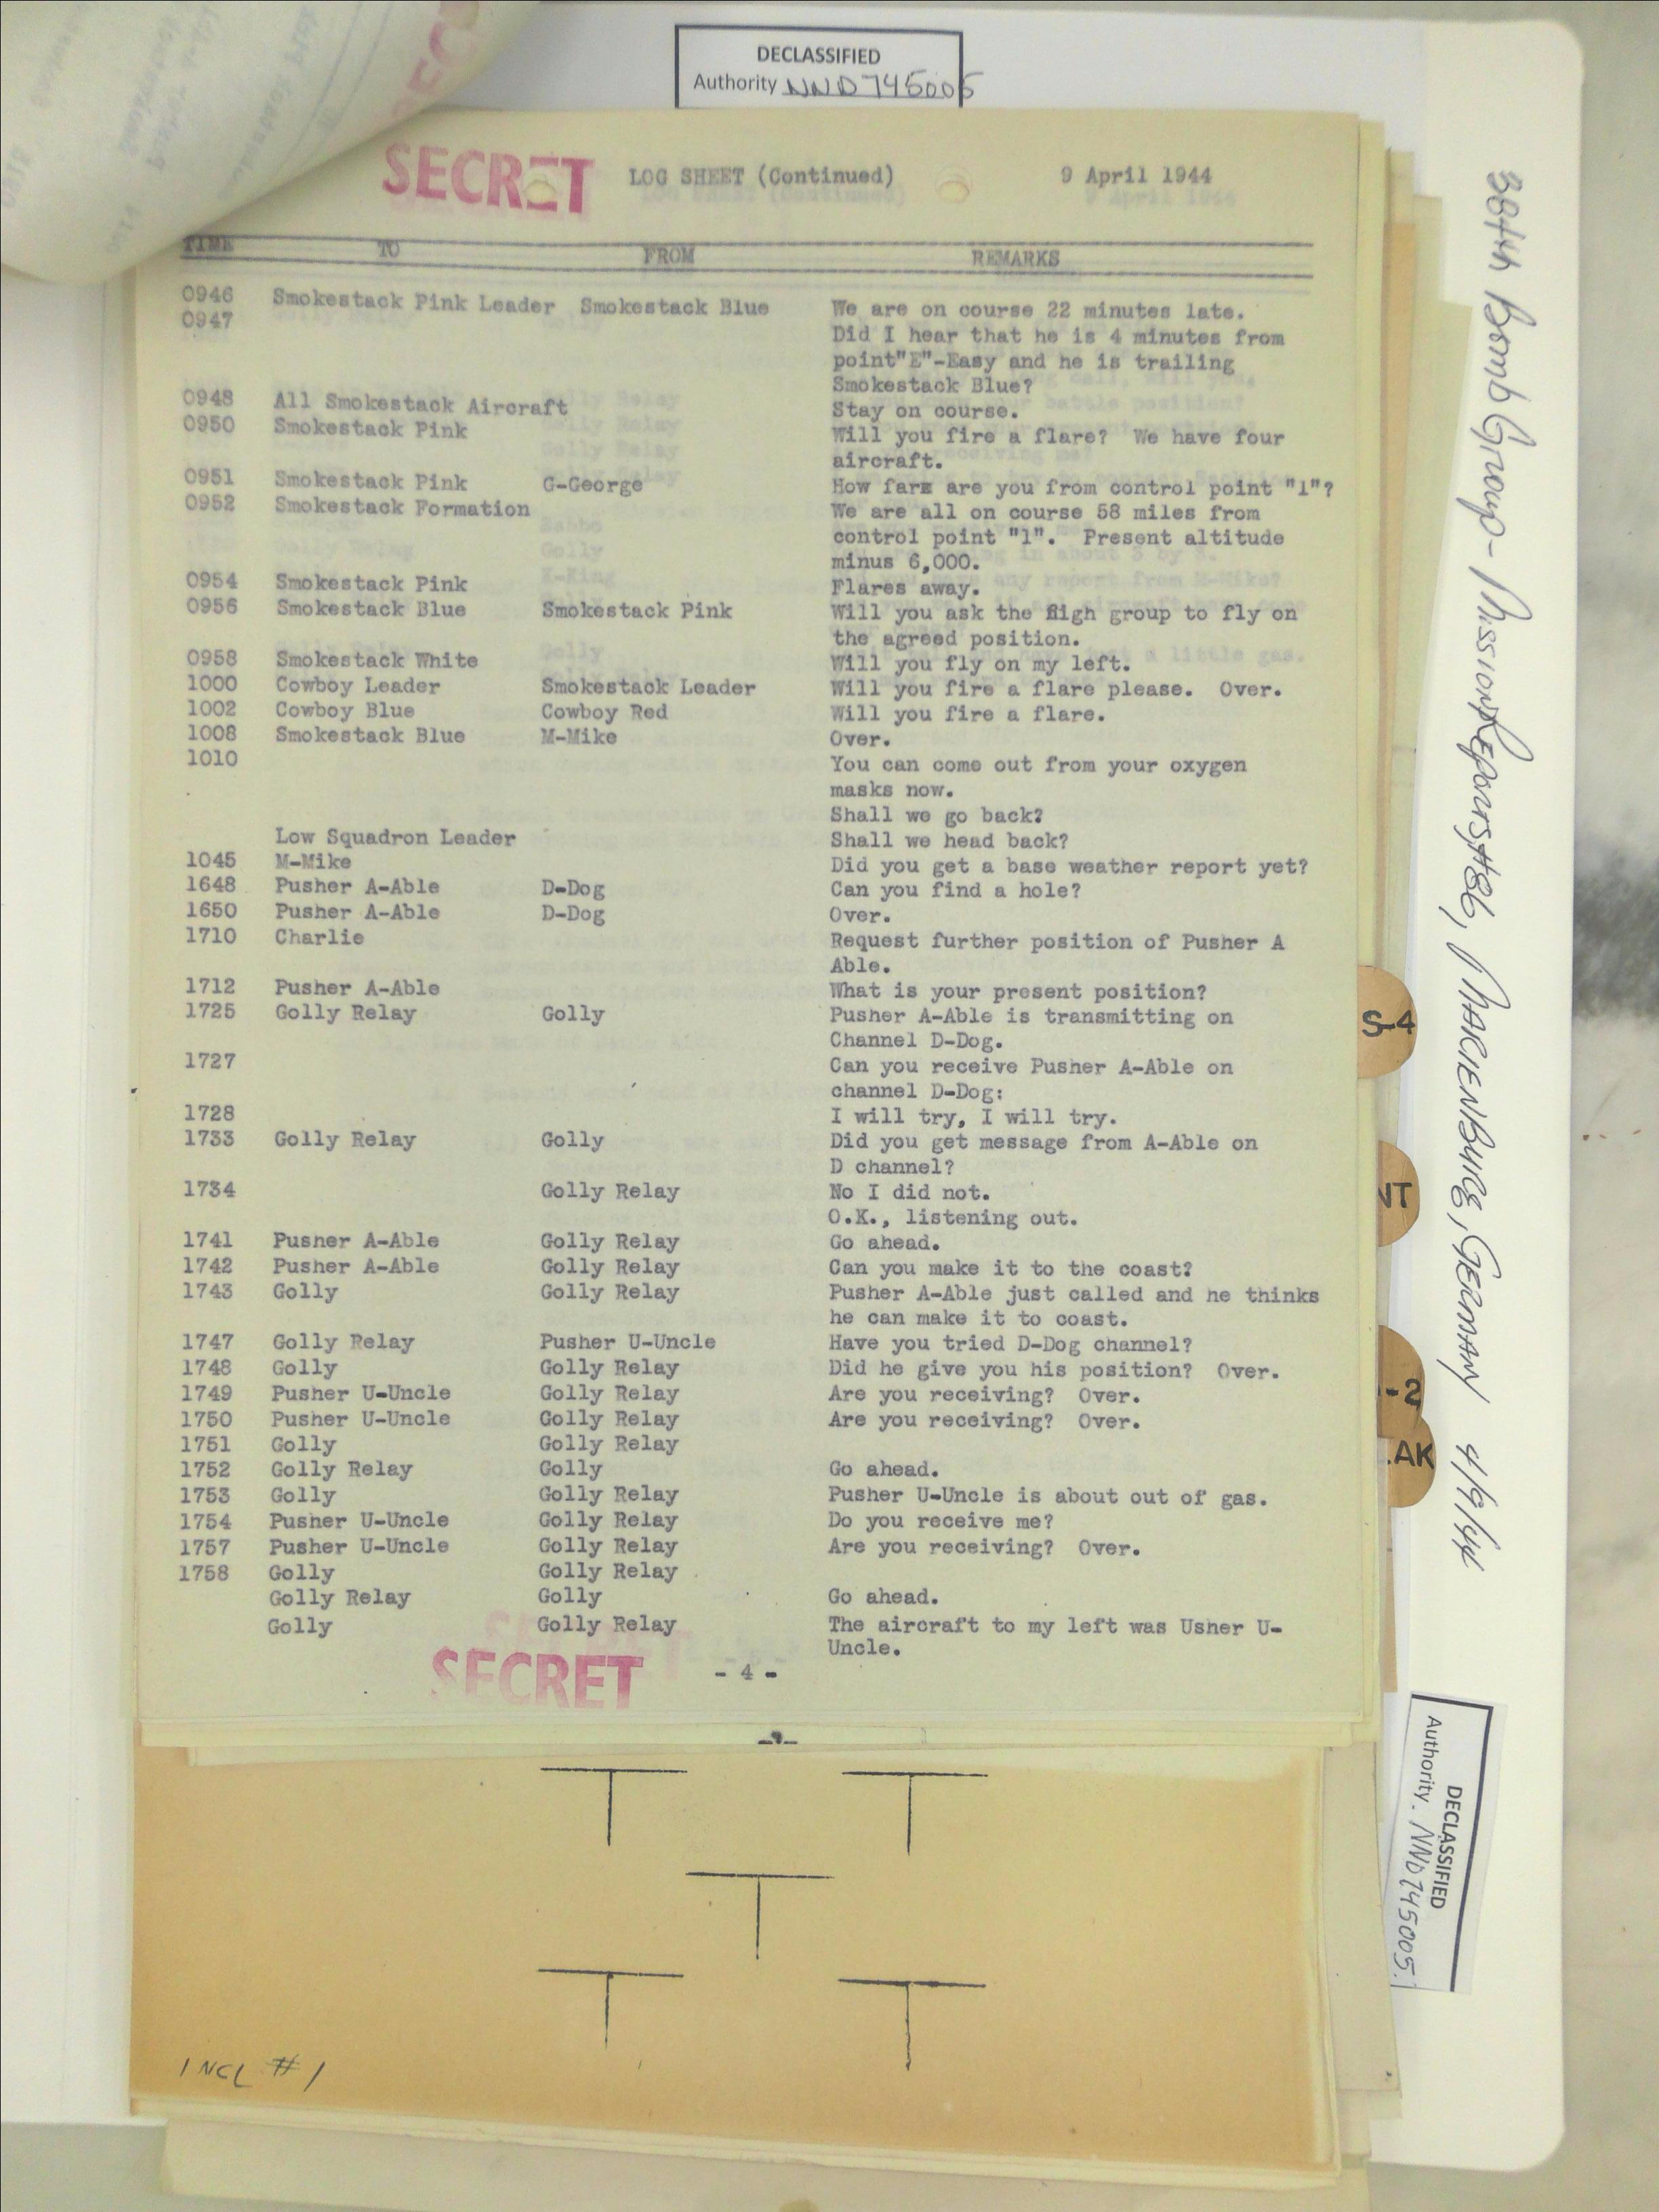 DECLASSIFIED
Authority NND745005
SECRET LOG SHEET (Continued) 9 April 1944
TIME TO FROM REMARKS
0946 Smokestack Pink Leader Smokestack Blue We are on course 22 minutes late.
0947 Did I hear that he is 4 minutes from
point"E"-Easy and he is trailing
Smokestack Blue?
0948 All Smokestack Aircraft Stay on course.
0950 Smokestack Pink Will you fire a flare? We have four
aircraft.
0951 Smokestack Pink G-George How farx are you from control point "1"?
0952 Smokestack Formation We are all on course 58 miles from
control point "1". Present altitude
minus 6,000.
0954 Smokestack Pink Flares away.
0956 Smokestack Blue Smokestack Pink Will you ask the High group to fly on
the agreed position.
0958 Smokestack White Will you fly on my left.
1000 Cowboy Leader Smokestack Leader Will you fire a flare please. Over.
1002 Cowboy Blue Cowboy Red Will you fire a flare.
1008 Smokestack Blue M-Mike Over.
1010 You can come out from your oxygen
masks now.
Shall we go back?
Low Squadron Leader Shall we head back?
1045 M-Mike Did you get a base weather report yet?
1648 Pusher A-Able D-Dog Can you find a hole?
1650 Pusher A-Able D-Dog Over.
1710 Charlie Request further position of Pusher A
Able.
1712 Pusher A-Able What is your present position?
1725 Golly Relay Golly Pusher A-Able is transmitting on
Channel D-Dog.
1727 Can you receive Pusher A-Able on
channel D-Dog:
1728 I will try, I will try.
1733 Golly Relay Golly Did you get message from A-Able on
D channel?
1734 Golly Relay No I did not.
O.K., listening out.
1741 Pusher A-Able Golly Relay Go ahead.
1742 Pusher A-Able Golly Relay Can you make it to the coast?
1743 Golly Golly Relay Pusher A-Able just called and he thinks
he can make it to coast.
1747 Golly Relay Pusher U-Uncle Have you tried D-Dog channel?
1748 Golly Golly Relay Did he give you his position? Over.
1749 Pusher U-Uncle Golly Relay Are you receiving? Over.
1750 Pusher U-Uncle Golly Relay Are you receiving? Over.
1751 Golly Golly Relay
1752 Golly Relay Golly Go ahead.
1753 Golly Golly Relay Pusher U-Uncle is about out of gas.
1754 Pusher U-Uncle Golly Relay Do you receive me?
1757 Pusher U-Uncle Golly Relay Are you receiving? Over.
1758 Golly Golly Relay
Golly Relay Golly Go ahead.
Golly Golly Relay The aircraft to my left was Usher U-
Uncle.
SECRET - 4 -
INCL #1
S-4
NT
-2
AK
388th Bomb Group - Mission Reports #86, MARIENBURG, GERMANY 4/9/44
DECLASSIFIED
Authority. NND745005.